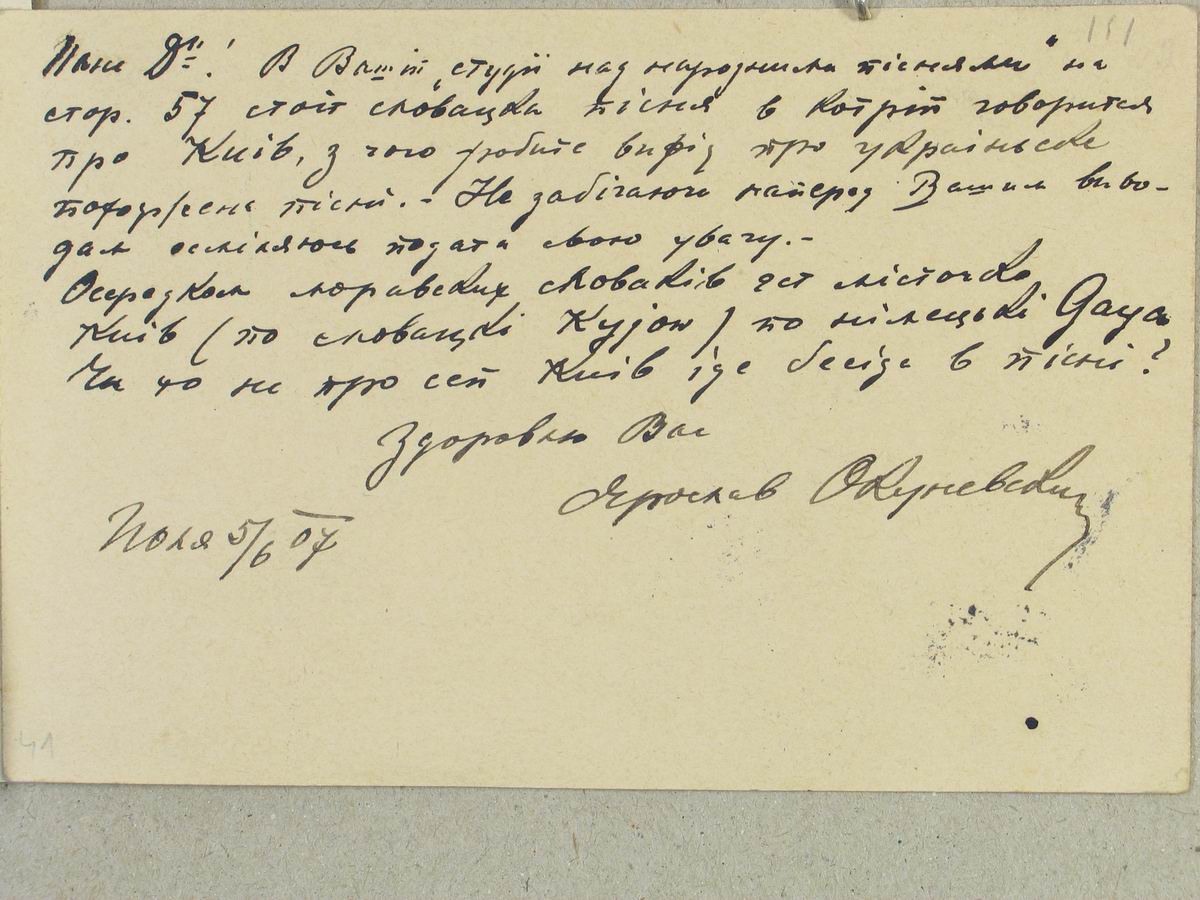 111
Пане Д-р! В Вашій „студії над народними піснями" на
стор. 57 стоїт словацка пісня в котрій говоритця
про Киів, з чого робите вивід про украіньске
походженє пісні. - Не забігаючи наперед Вашим виво-
дам осміляюсь подати свою увагу. -
Осередком моравских словаків єст місточко
Киів (по словацкі Kyjow) по німецькі Gaya
Чи то не про сей Киів іде бесіда в пісні?
Здоровлю Вас
Ярослав Окуневский
Поля 5/6 07
41